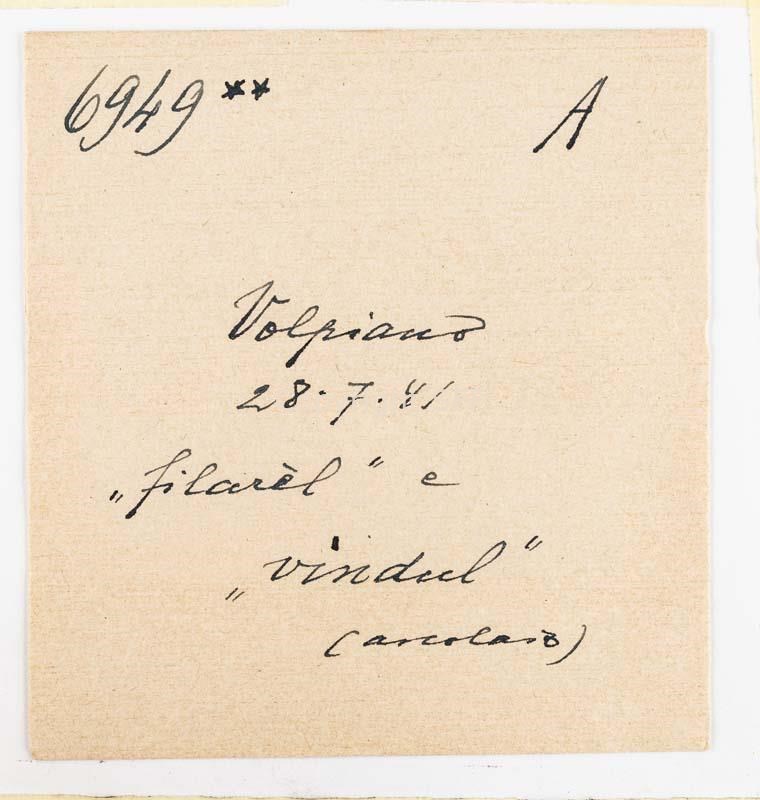 6949** A
Volpiano
28·7·41
„filarèl" e
„vindul"
(arcolaio)